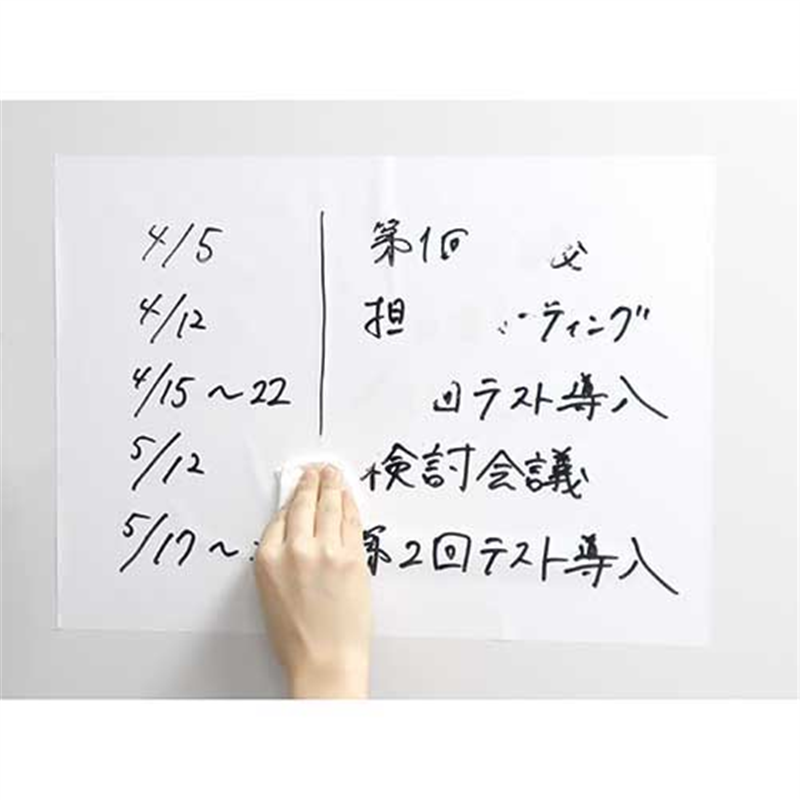 4/5 第1回
4/12 担 ーティング
4/15～22 回テスト導入
5/12 検討会議
5/17～ 第2回テスト導入